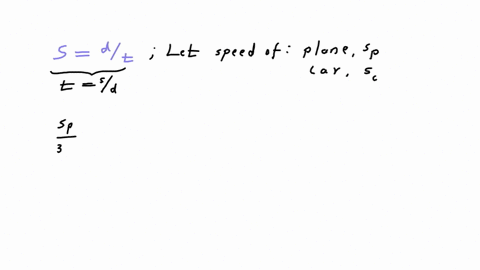 S = d/t ; Let speed of: plane, sp
car, sc
t = s/d
sp
3